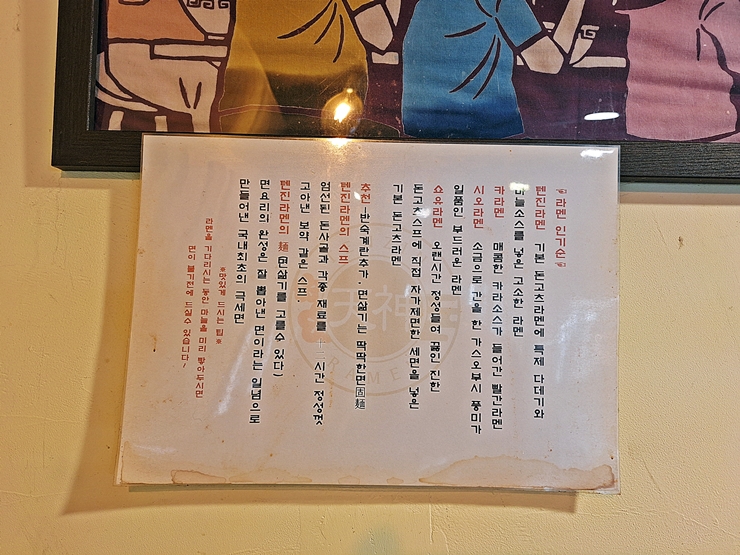 ☜ 라멘 인기순 ☜
텐진라멘 기본 돈고츠라멘에 특제 다데기와
마늘소스를 넣은 고소한 라멘
카라멘 매콤한 카라소스가 들어간 빨간라멘
시오라멘 소금으로 간을 한 가스오부시 풍미가
일품인 부드러운 라멘
쇼유라멘 오랜시간 정성들여 끓인 진한
돈고츠스프에 직접 자가제면한 세면을 넣은
기본 돈고츠라멘
추천-반숙계란추가, 면삶기는 딱딱한면 固麵
텐진라멘의 스프.
엄선된 돈사골과 각종 재료를 十二시간 정성껏
고아낸 보약 같은 스프.
텐진라멘의 麵 (면삶기를 고를수 있다)
면요리의 완성은 잘 뽑아낸 면이라는 일념으로
만들어낸 국내최초의 극세면
※맛있게 드시는 팁※
라멘을 기다리시는 동안 마늘을 미리 빻아두시면
면이 불기전에 드실수 있습니다!
天神
RAMEN